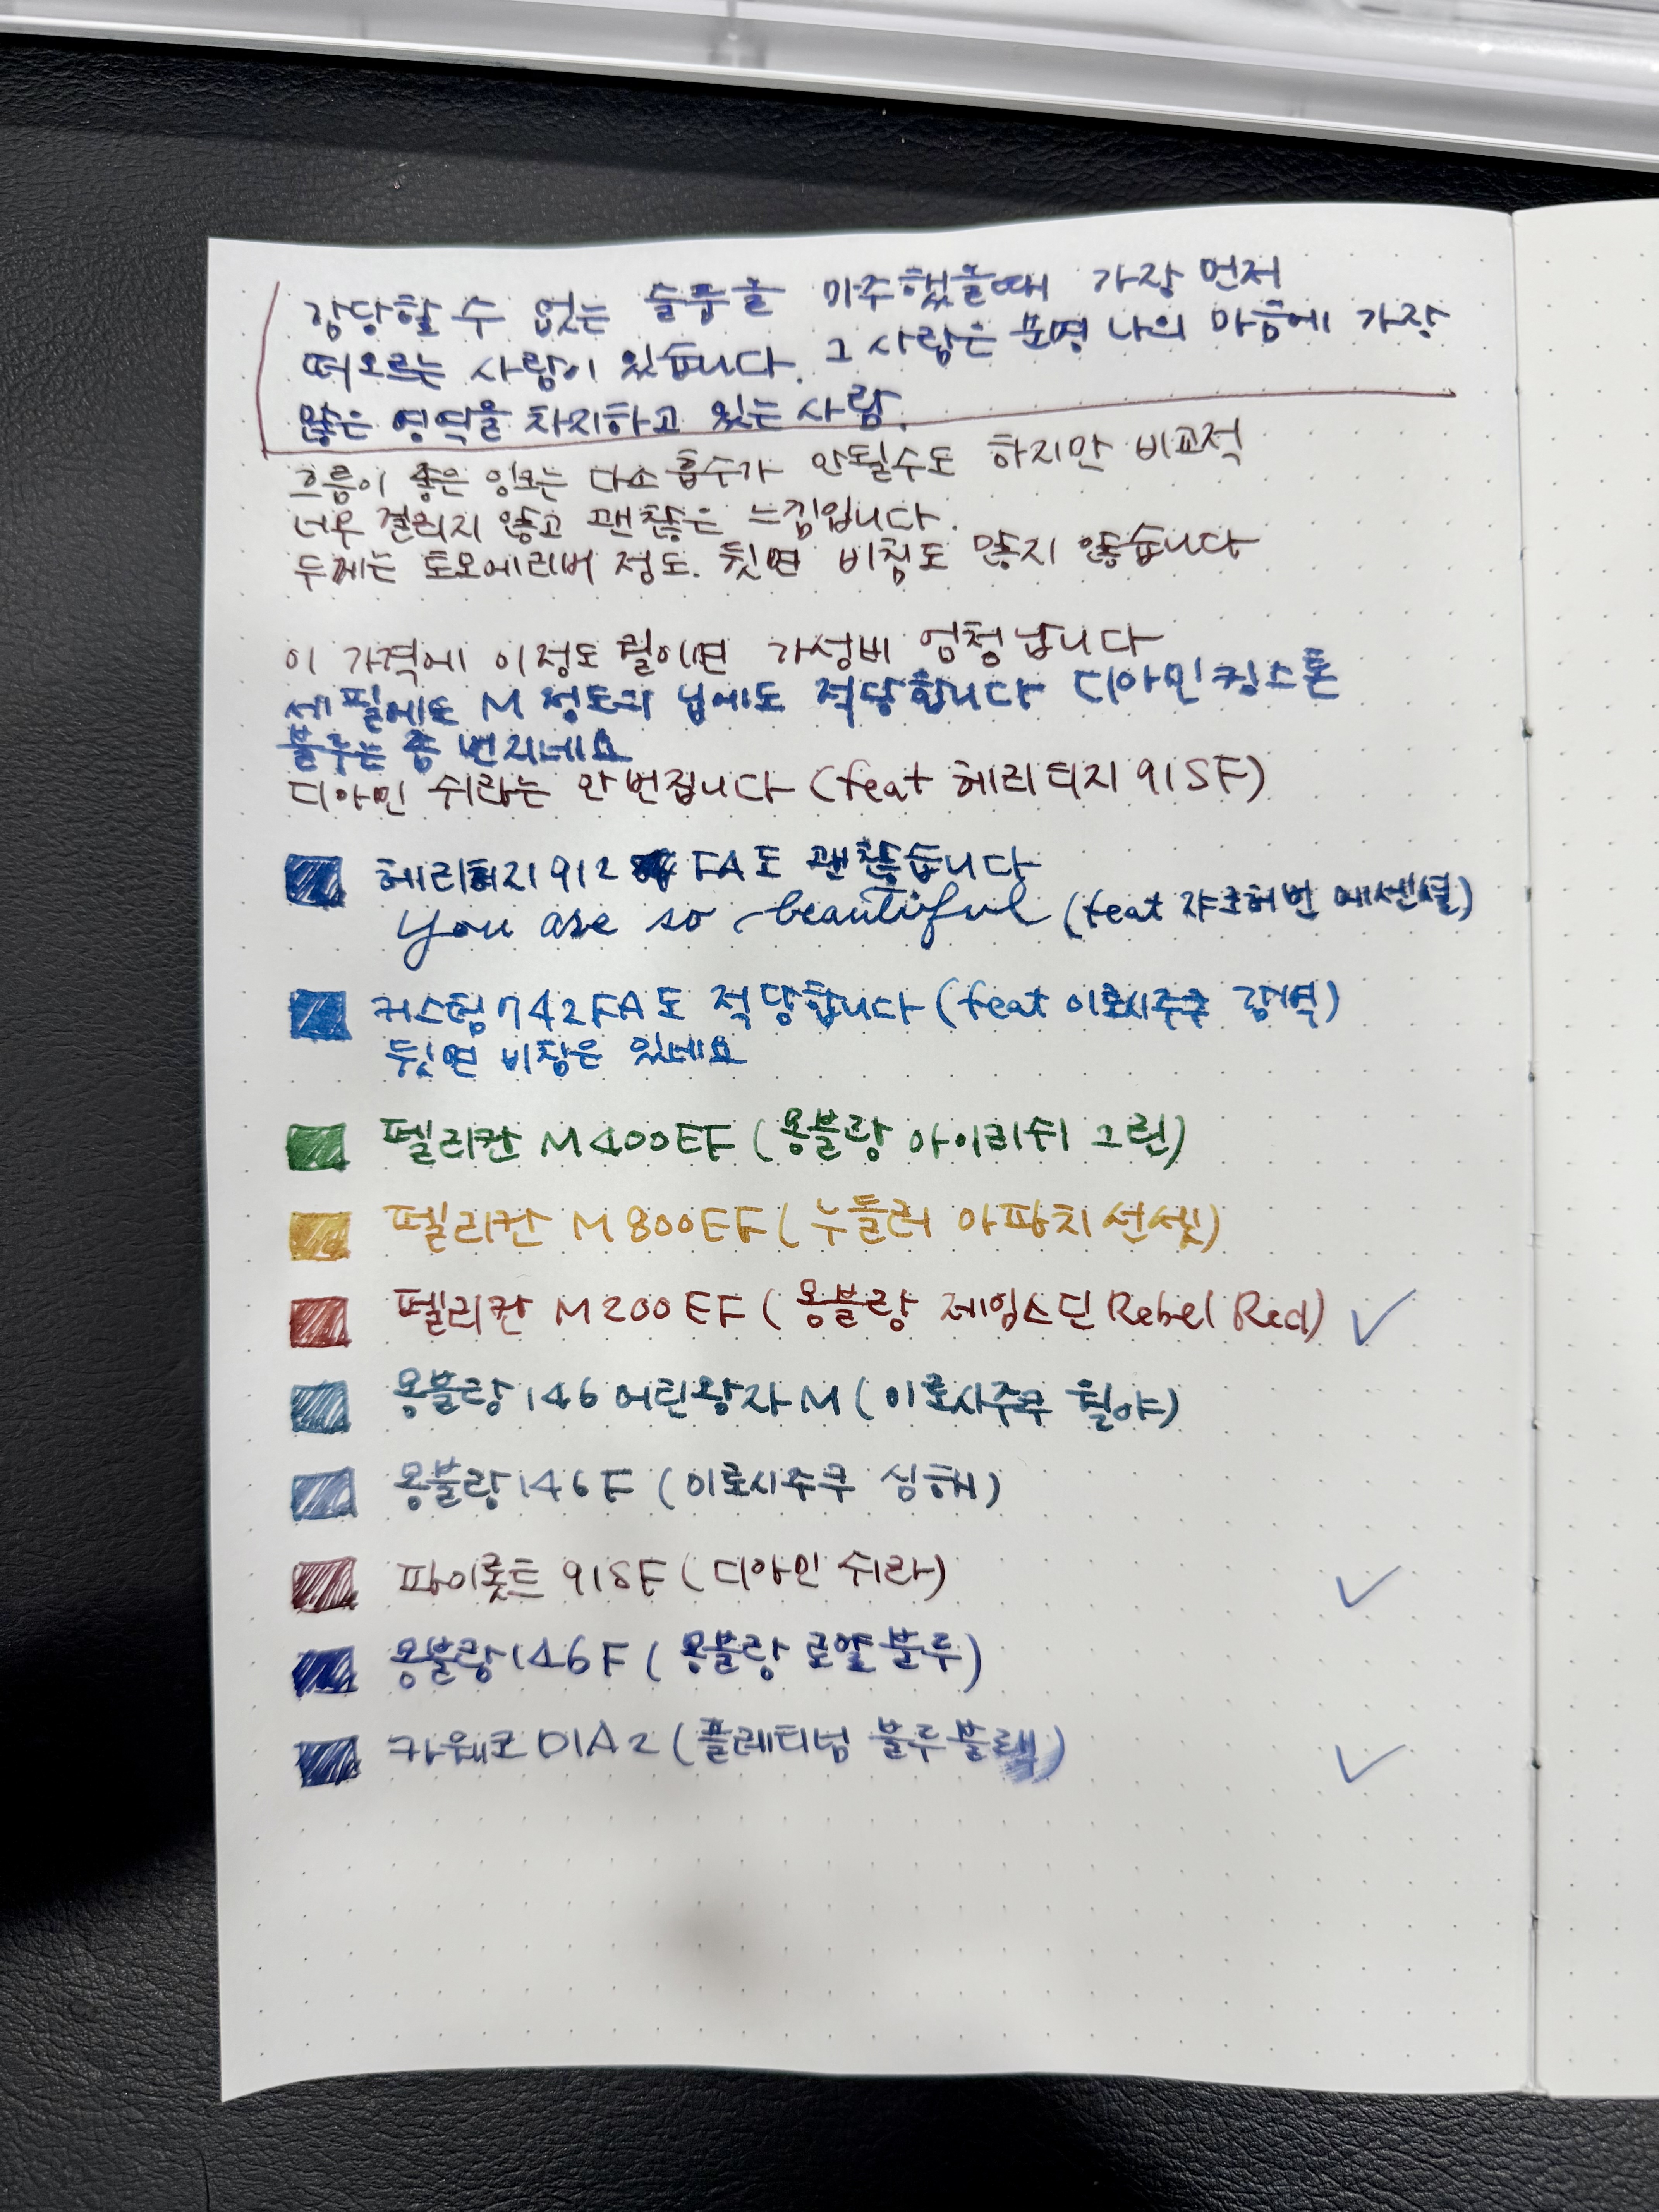 감당할 수 없는 슬픔을 마주했을때 가장 먼저
떠오르는 사람이 있습니다. 그 사람은 분명 나의 마음에 가장
많은 영역을 차지하고 있는 사람.
흐름이 좋은 잉크는 다소 흡수가 안될수도 하지만 비교적
너무 걸리지 않고 괜찮은 느낌입니다.
두께는 토모에리버 정도. 뒷면 비침도 많지 않습니다
이 가격에 이정도 퀄이면 가성비 엄청납니다
세필에도 M 정도의 닙에도 적당합니다 디아민 킹스톤
블루는 좀 번지네요
디아민 쉬라는 안번집니다 (feat 헤리티지 91SF)
헤리티지 912 FA도 괜찮습니다
you are so beautiful (feat 쟈크허번 에센셜)
커스텀 742FA도 적당합니다 (feat 이로시주쿠 감벽)
뒷면 비침은 있네요
펠리칸 M400EF (몽블랑 아이리쉬 그린)
펠리칸 M800EF (누들러 아파치 선셋)
펠리칸 M200EF (몽블랑 제임스딘 Rebel Red) ✓
몽블랑 146 어린왕자 M (이로시주쿠 월야)
몽블랑 146F (이로시주쿠 심해)
파이롯트 91SF (디아민 쉬라) ✓
몽블랑 146F (몽블랑 로얄블루)
카웨코 DIA2 (플레티넘 블루블랙) ✓